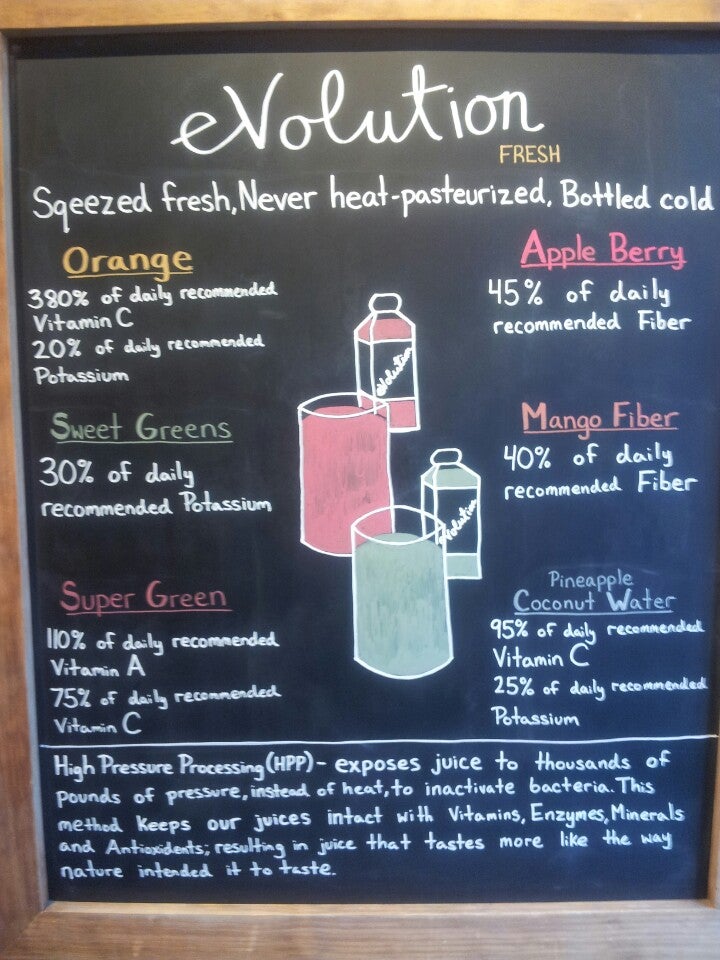 eVolution
FRESH
Sqeezed fresh, Never heat-pasteurized, Bottled cold
Orange
380% of daily recommended
Vitamin C
20% of daily recommended
Potassium
Sweet Greens
30% of daily
recommended Potassium
Super Green
110% of daily recommended
Vitamin A
75% of daily recommended
Vitamin C
evolution
evolution
Apple Berry
45% of daily
recommended Fiber
Mango Fiber
40% of daily
recommended Fiber
Pineapple
Coconut Water
95% of daily recommended
Vitamin C
25% of daily recommended
Potassium
High Pressure Processing (HPP) - exposes juice to thousands of
pounds of pressure, instead of heat, to inactivate bacteria. This
method keeps our juices intact with Vitamins, Enzymes, Minerals
and Antioxidents; resulting in juice that tastes more like the way
nature intended it to taste.